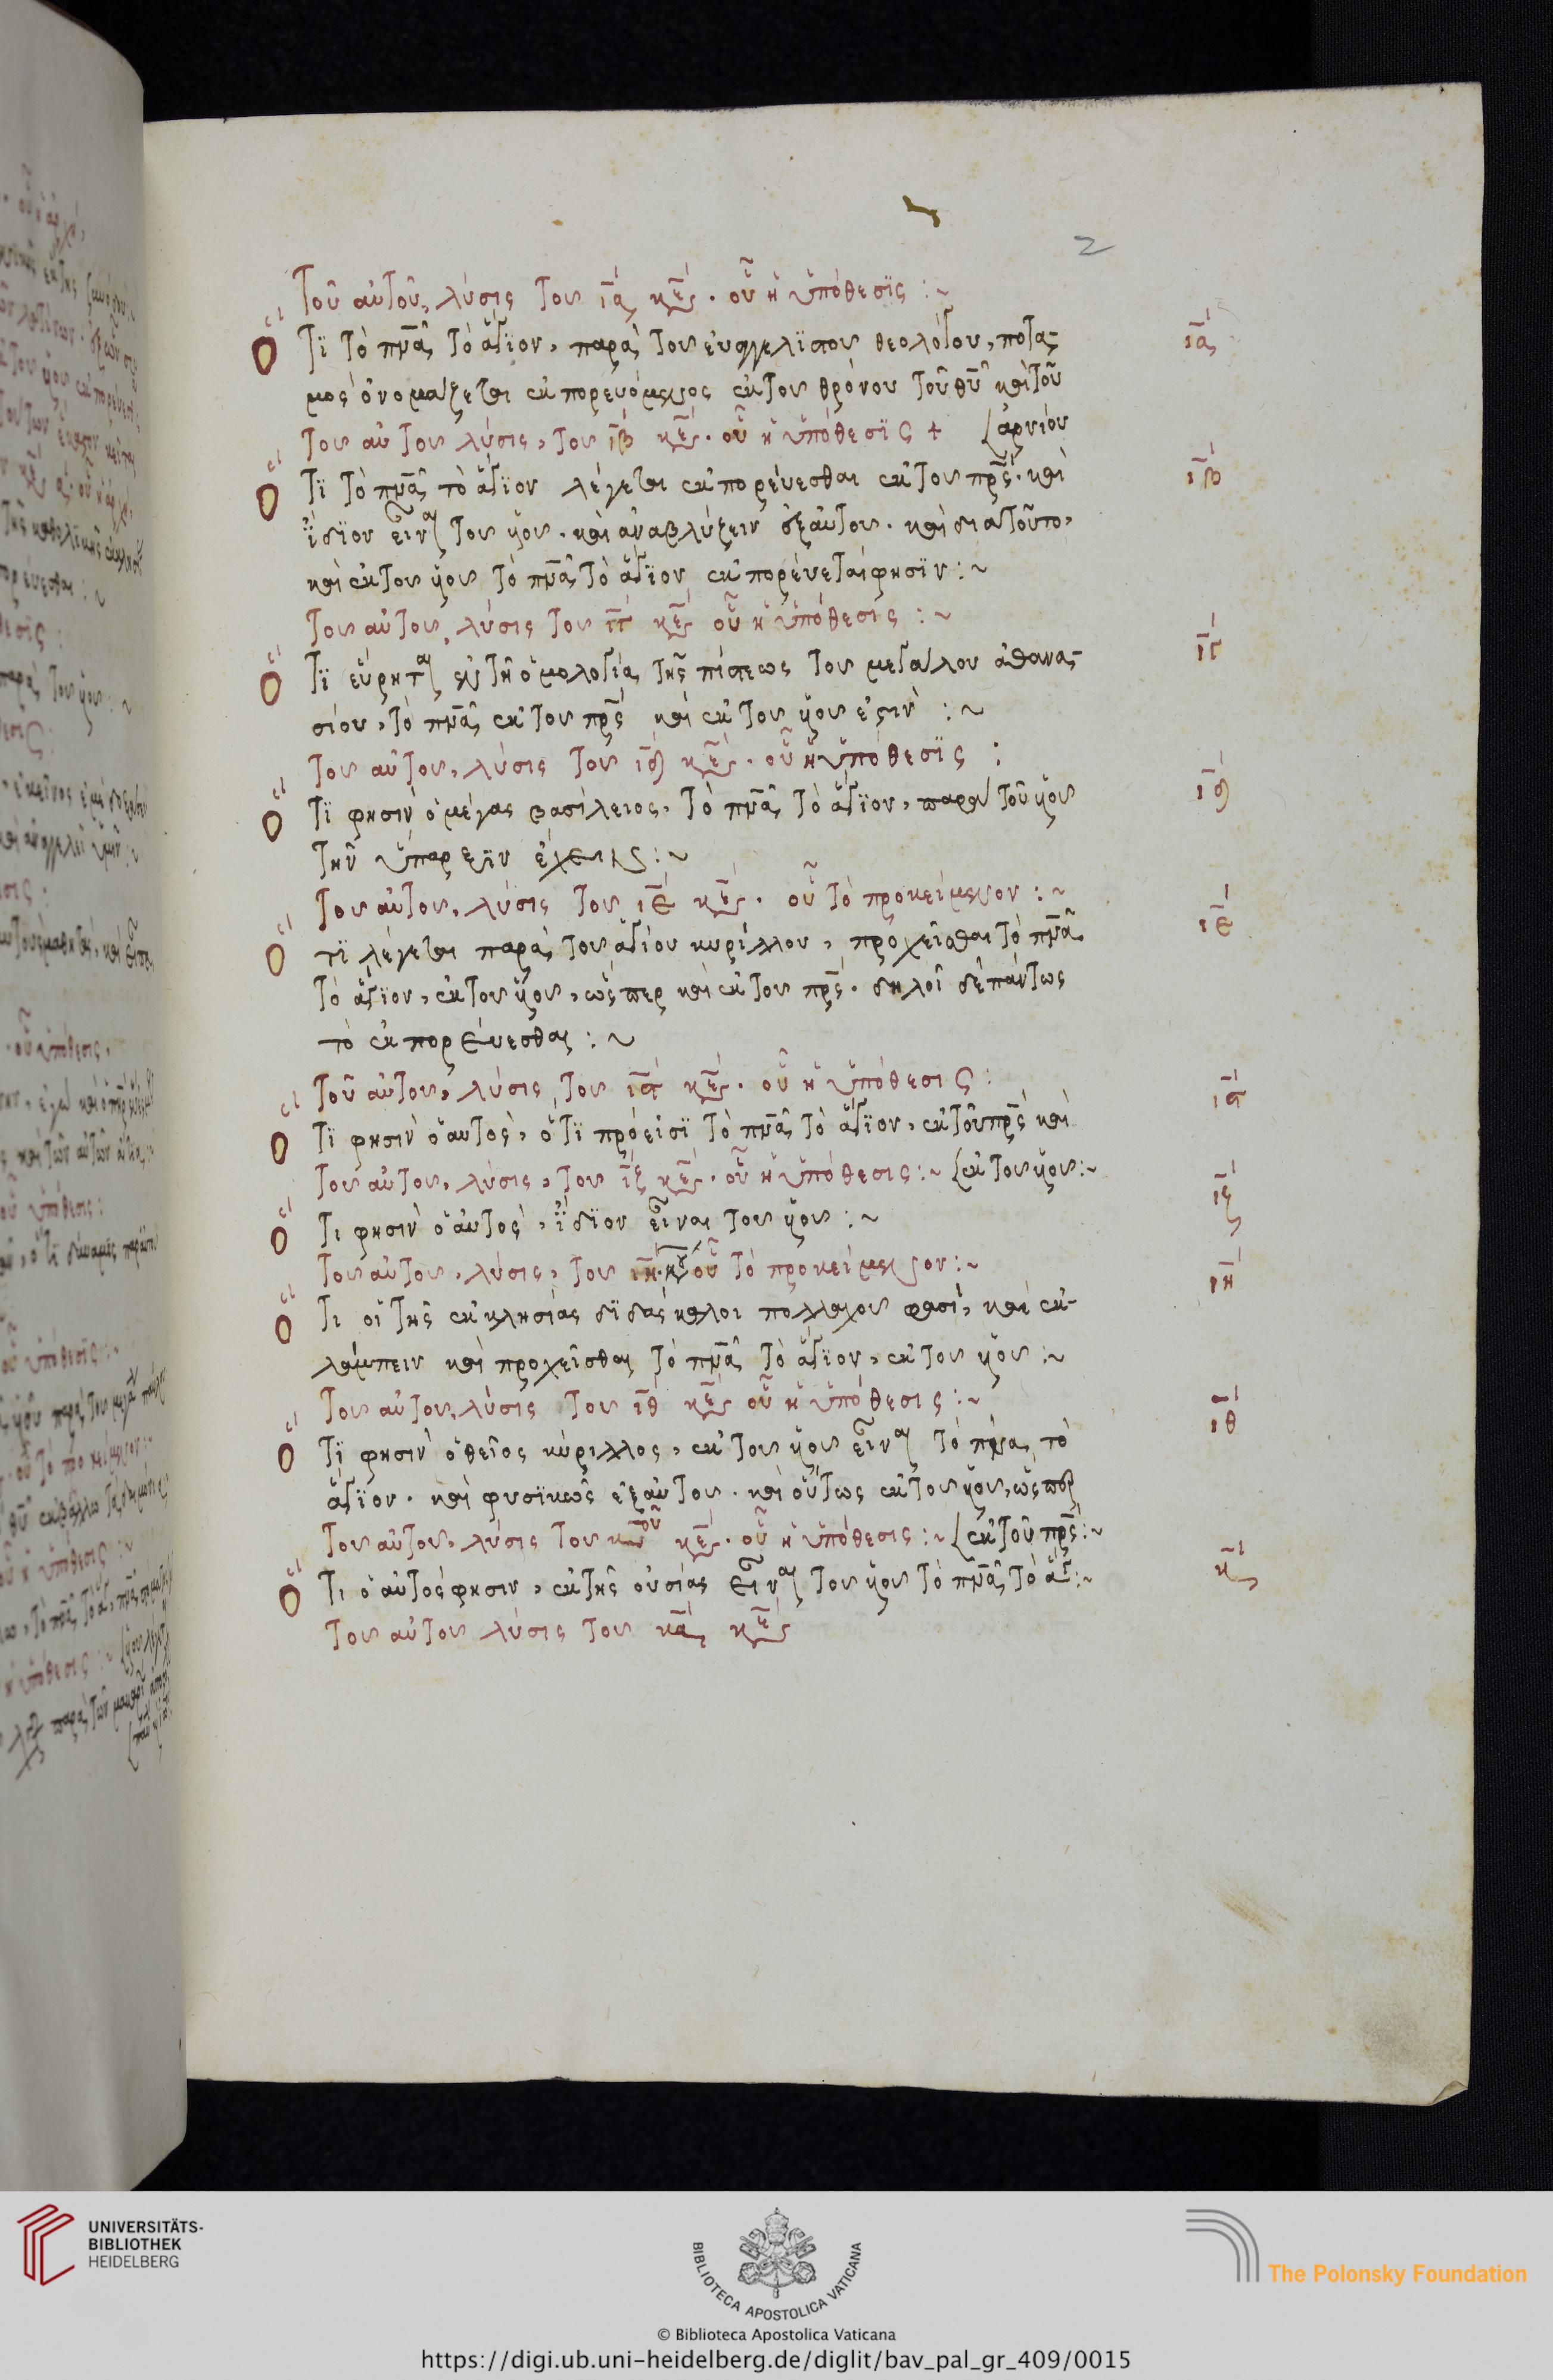 2
Τοῦ αὐτοῦ, λύσις τοῦ ια κεφ. οὗ ἡ ὑπόθεσϊς :~
Ὅ Τϊ τὸ πνᾶ τὸ ἅγϊον, παρὰ τοῦ ἐυαγγελϊστοῦ θεολόγου, ποτα- ια
μὸς ὀνομάζεται ἐκπορευόμενος ἐκ τοῦ θρόνου τοῦ θῦ καὶ τοῦ
Τοῦ αὐτοῦ λύσις, τοῦ ιβ κεφ. οὗ ἡ ὑπόθεσϊς + (ἀρνίου
Ὅ Τϊ τὸ πνᾶ τὸ ἅγϊον λέγεται ἐκπορέυεσθαι ἐκ τοῦ πρς. καὶ ιβ
ἴδϊον εἶναι τοῦ ὑοῦ. καὶ ἀναβλύζειν ἐξ αὐτοῦ. καὶ δια τοῦτο,
καὶ ἐκ τοῦ ὑοῦ τὸ πνᾶ τὸ ἅγϊον ἐκπορέυεταί φησϊν :~
Τοῦ αὐτοῦ, λύσις τοῦ ιγ κεφ οὗ ἡ ὑπόθεσις :~
Ὅ Τϊ εὕρηται ἐν τῆ ὁμολογία τῆς πίστεως τοῦ μεγάλου ἀθανα- ιγ
σίου, τὸ πνᾶ ἐκ τοῦ πρς καὶ ἐκ τοῦ ὑοῦ ἐστιν :~
Τοῦ αὐτοῦ, λύσις τοῦ ιδ κεφ. οὗ ἡ ὑπόθεσϊς :
Ὅ Τϊ φησιν ὁ μέγας βασίλειος, τὸ πνᾶ τὸ ἅγϊον, παρα τοῦ ὑοῦ ιδ
τὴν ὕπαρξϊν ἔχειν :~
Τοῦ αὐτοῦ, λύσις τοῦ ιε κεφ. οὗ τὸ προκείμενον :~
Ὅ τϊ λέγεται παρὰ τοῦ ἁγίου κυρίλλου, προχεῖσθαι τὸ πνᾶ ιε
τὸ ἅγϊον, ἐκ τοῦ ὑοῦ, ὥσπερ καὶ ἐκ τοῦ πρς. δηλοῖ δὲ πάντως
τὸ ἐκπορέυεσθαι :~
Τοῦ αὐτοῦ, λύσις, τοῦ ις κεφ. οὗ ἡ ὑπόθεσις :
Ὅ Τϊ φησιν ὁ αυτὸς, ὅτϊ πρόεισϊ τὸ πνᾶ τὸ ἅγϊον, ἐκ τοῦ πρς καὶ ις
Τοῦ αὐτοῦ, λύσις, τοῦ ιζ κεφ. οὗ ἡ ὑπόθεσις :~ (ἐκ τοῦ ὑοῦ :~
Ὅ Τι φησιν ὁ ἀυτὸς, ἴδϊον εἶναι τοῦ ὑοῦ :~ ιζ
Τοῦ αὐτοῦ, λύσις, τοῦ ιη κεφ οὗ τὸ προκείμενον :~
Ὅ Τι οἱ τῆς ἐκκλησίας δϊδάσκαλοι πολλαχοῦ φασὶ, καὶ ἐκ- ιη
λάμπειν καὶ προχεῖσθαι τὸ πνᾶ τὸ ἅγϊον, ἐκ τοῦ ὑοῦ :~
Τοῦ αὐτοῦ, λύσις τοῦ ιθ κεφ οὗ ἡ ὑπόθεσις :~
Ὅ Τϊ φησιν ὁ θεῖος κύριλλος, ἐκ τοῦ ὑοῦ εἶναι τὸ πνα τὸ ιθ
ἅγϊον. καὶ φυσϊκῶς ἐξ ἀυτοῦ. καὶ οὕτως ἐκ τοῦ ὑοῦ, ὥσπερ
Τοῦ αὐτοῦ, λύσις τοῦ κου κεφ. οὗ ἡ ὑπόθεσις :~ (ἐκ τοῦ πρς :~
Ὅ Τι ὁ αὐτός φησιν, ἐκ τῆς οὐσίας εἶναι τοῦ ὑοῦ τὸ πνᾶ τὸ ἅγ :~ κ
Τοῦ αὐτοῦ λύσις τοῦ κα κεφ
UNIVERSITÄTS-
BIBLIOTHEK
HEIDELBERG
BIBLIOTECA APOSTOLICA VATICANA
The Polonsky Foundation
© Biblioteca Apostolica Vaticana
https://digi.ub.uni-heidelberg.de/diglit/bav_pal_gr_409/0015